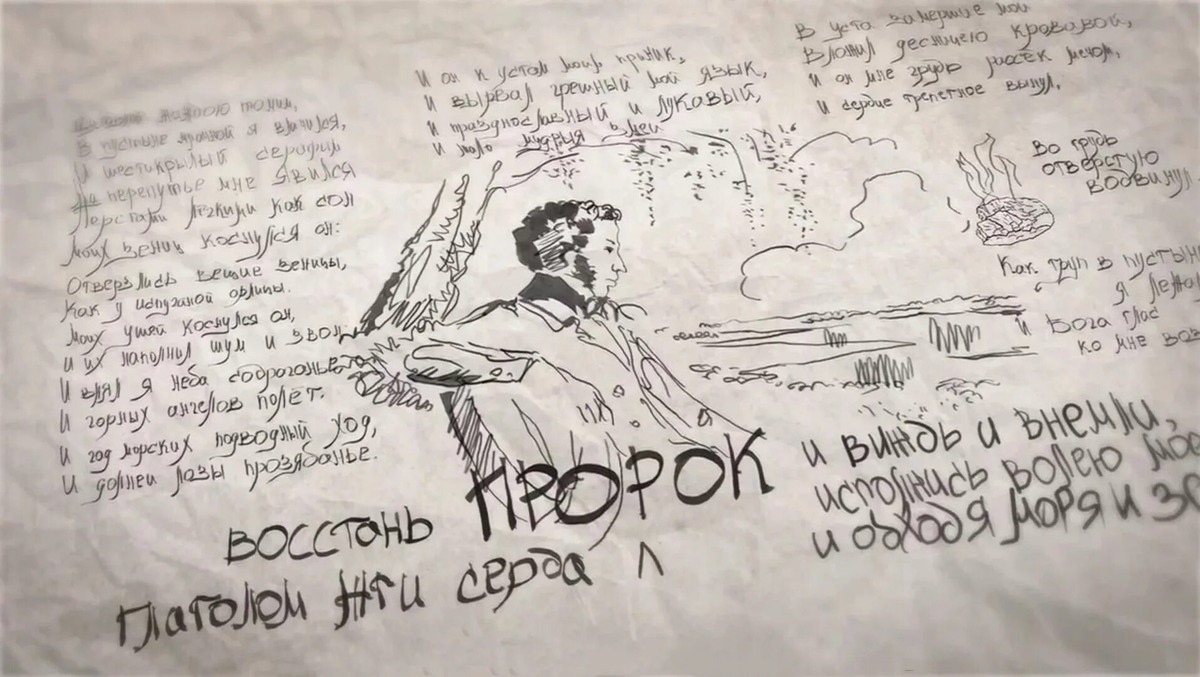 жаждою томим,
В пустыне мрачной я влачился,
И шестикрылый серафим
На перепутье мне явился
Перстами лёгкими как сон
Моих зениц коснулся он:
Отверзлись вещие зеницы,
Как у испуганой орлицы.
Моих ушей коснулся он,
И их наполнил шум и звон:
И внял я неба
И горных ангелов полёт.
И гад морских подводный ход,
И долней лозы прозябанье.
И он к устам моим приник,
И вырвал грешный мой язык,
И празднословный и лукавый,
И жало мудрыя змеи
В уста замершие мои
Вложил десницею кровавой,
И он мне грудь рассёк мечом,
И сердце трепетное вынул,
Во грудь
отверстую
водвинул
Как труп в пустын
я лежал
И Бога глас
ко мне воз
ВОССТАНЬ ПРОРОК
и виждь и внемли,
исполнись волею мое
и обходя моря и зе
Глаголом жги серда л